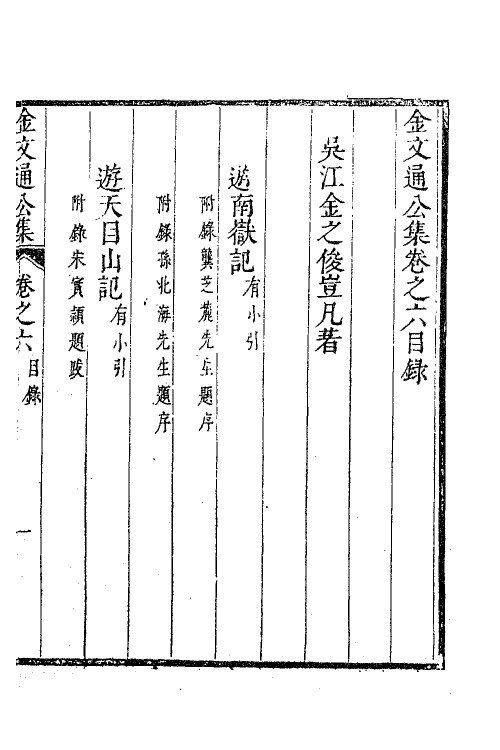 金文通公集卷之六目録
吳江金之俊豈凡著
遊南嶽記有小引
附錄龔芝麓先生題序
附錄孫北海先生題序
遊天目山記有小引
附錄朱賓頴題跋
金文通公集 卷之六 目錄 一